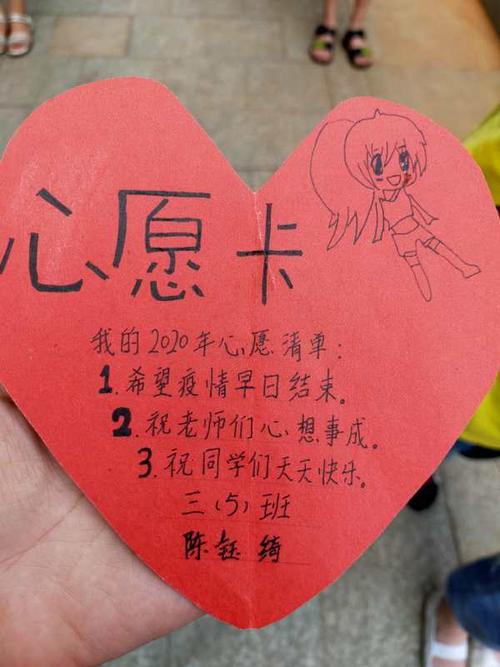 心愿卡
我的2020年心愿清单:
1.希望疫情早日结束。
2.祝老师们心想事成。
3.祝同学们天天快乐。
三(5)班
陈钰绮